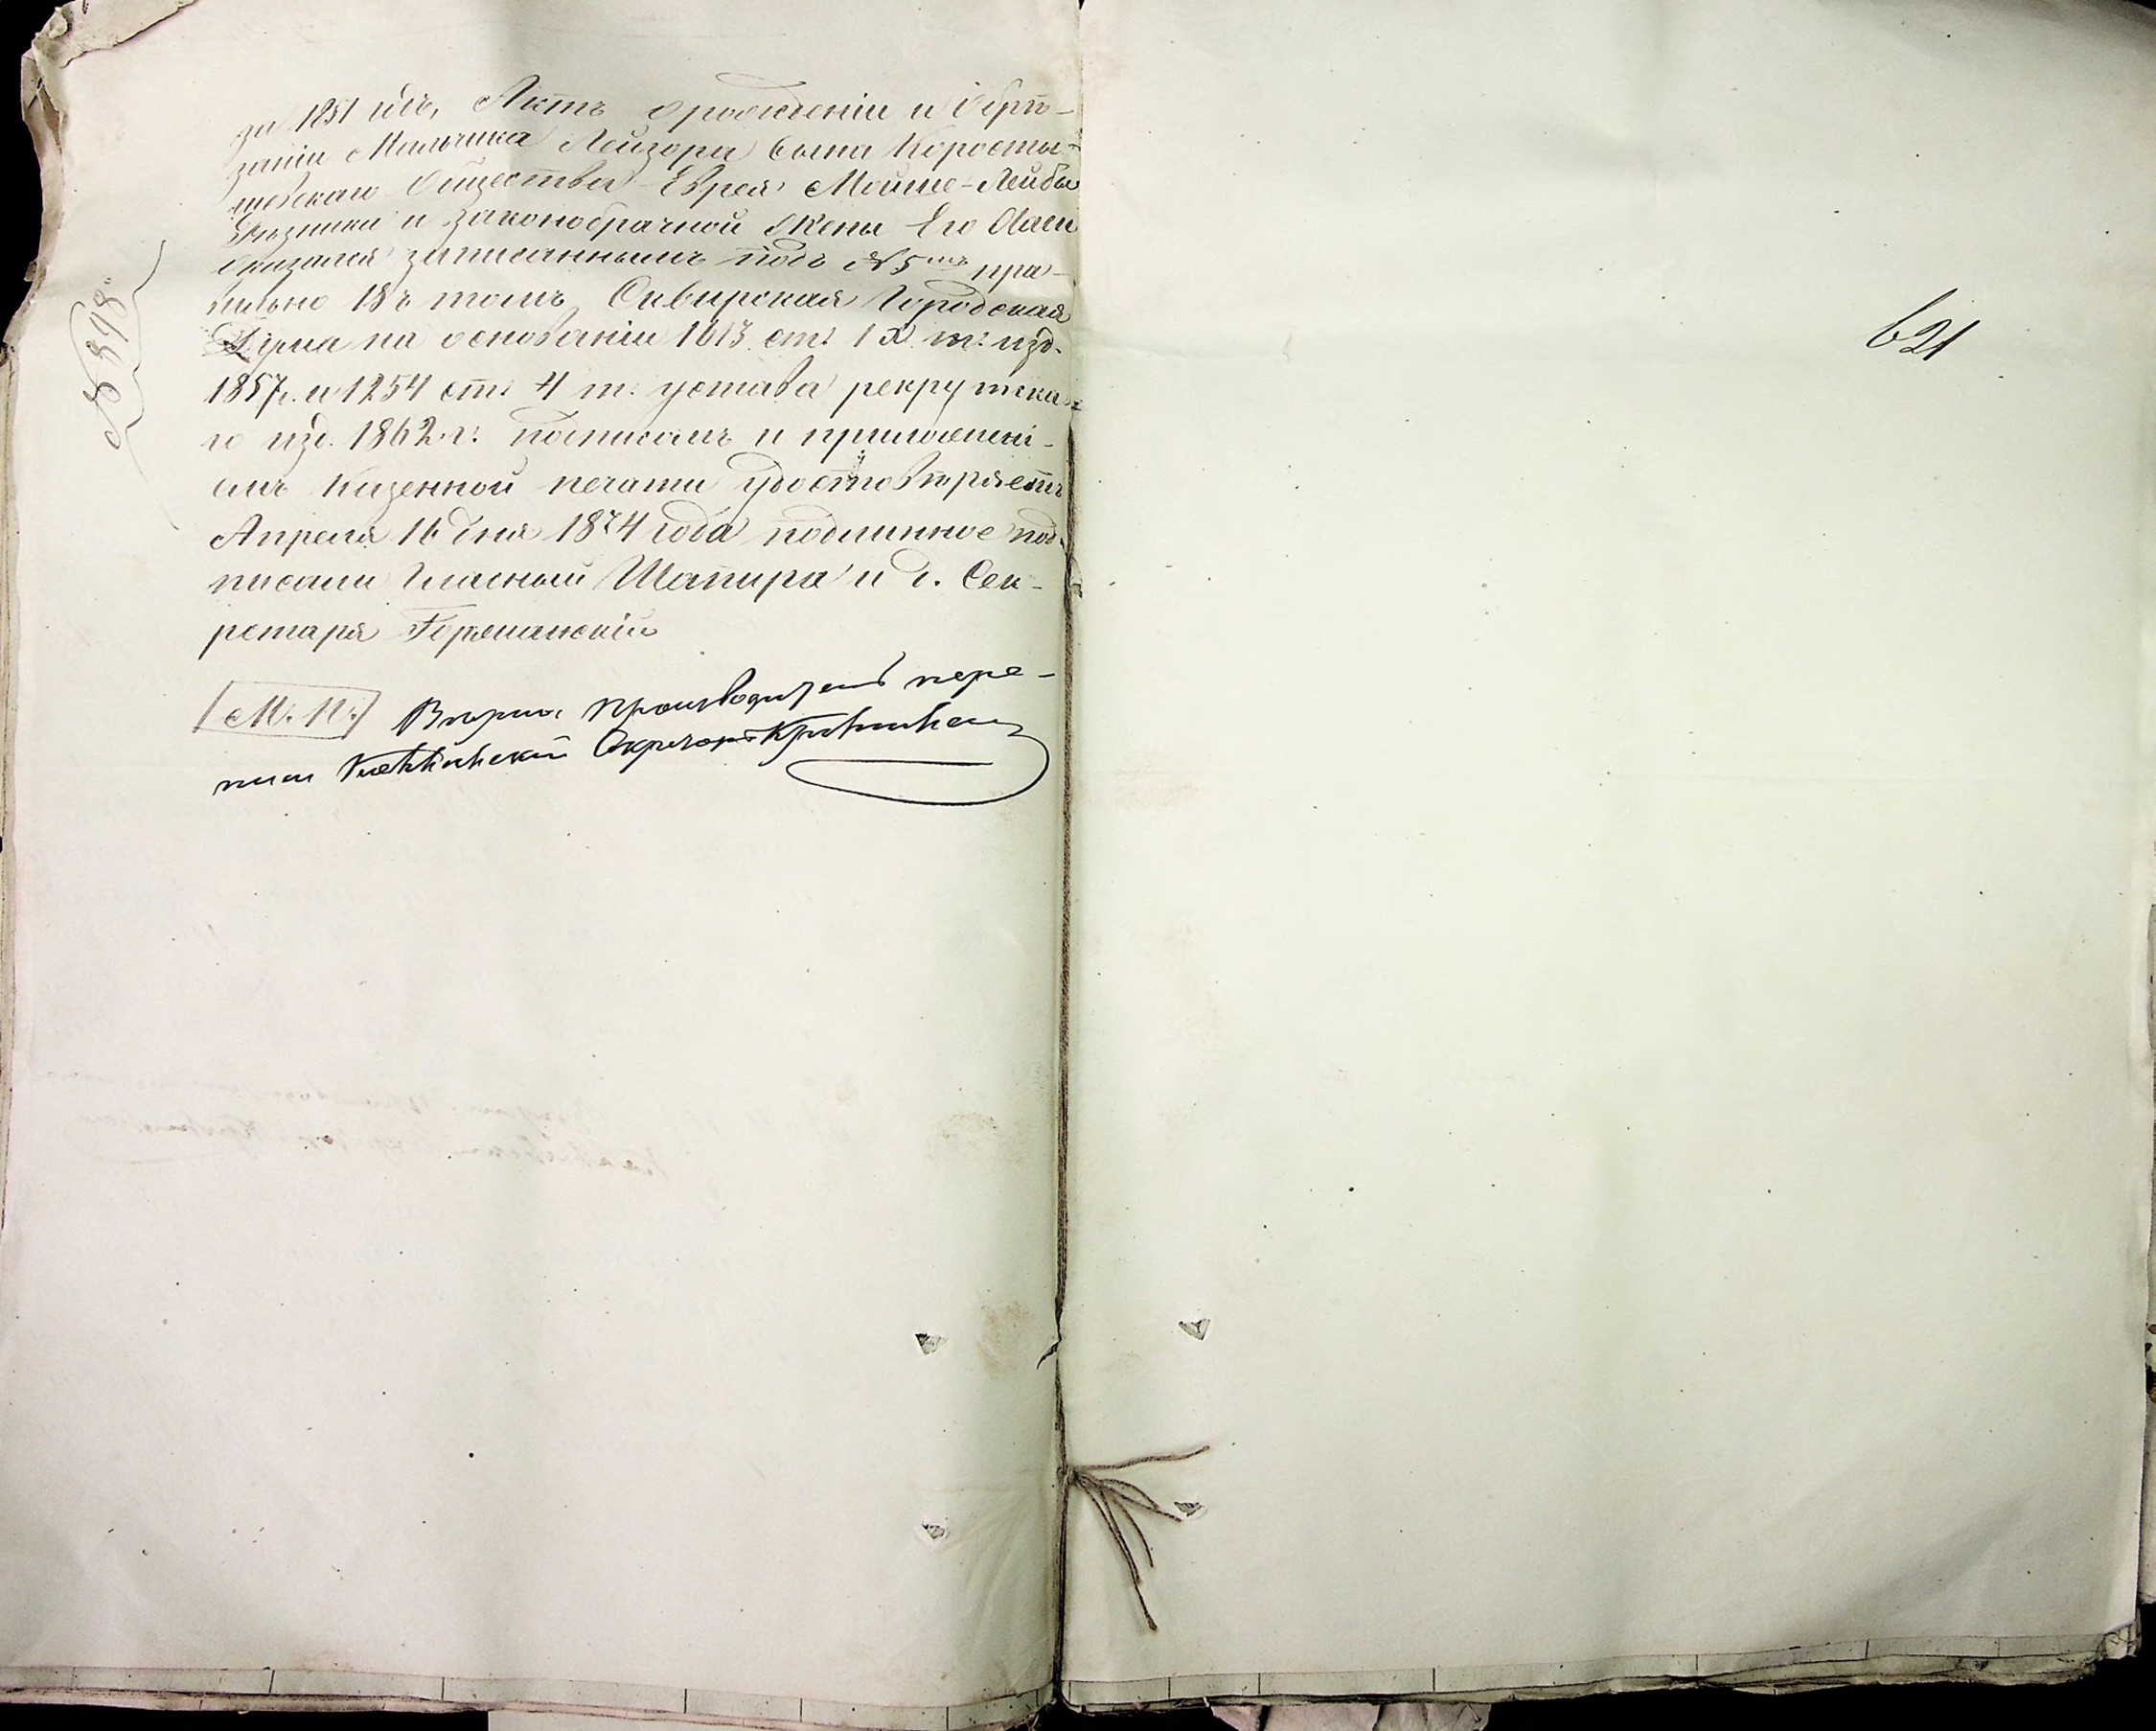 за 1851 годъ, Актъ о рожденіи и обрѣ-
заніи Мальчика Лейзора сына Коросты-
шевскаго Общества Еврея Мойше-Лейбы
и законобрачной Жены Его
оказался записаннымъ подъ № 5мъ пра-
вильно въ томъ Сквирская Городская
Дума на основаніи 1613 ст: IX т: изд.
1857 г. и 1254 ст: 4 т: устава рекрутска-
го изд. 1862 г: подписомъ и приложені-
емъ Казенной печати удостовѣряетъ
Апрѣля 16 дня 1874 года подлинное под-
писали Гласный Шапира и д. Сек-
ретаря
М. П. Вѣрно: производитель пере-
писи Секретарь
№ 898
621